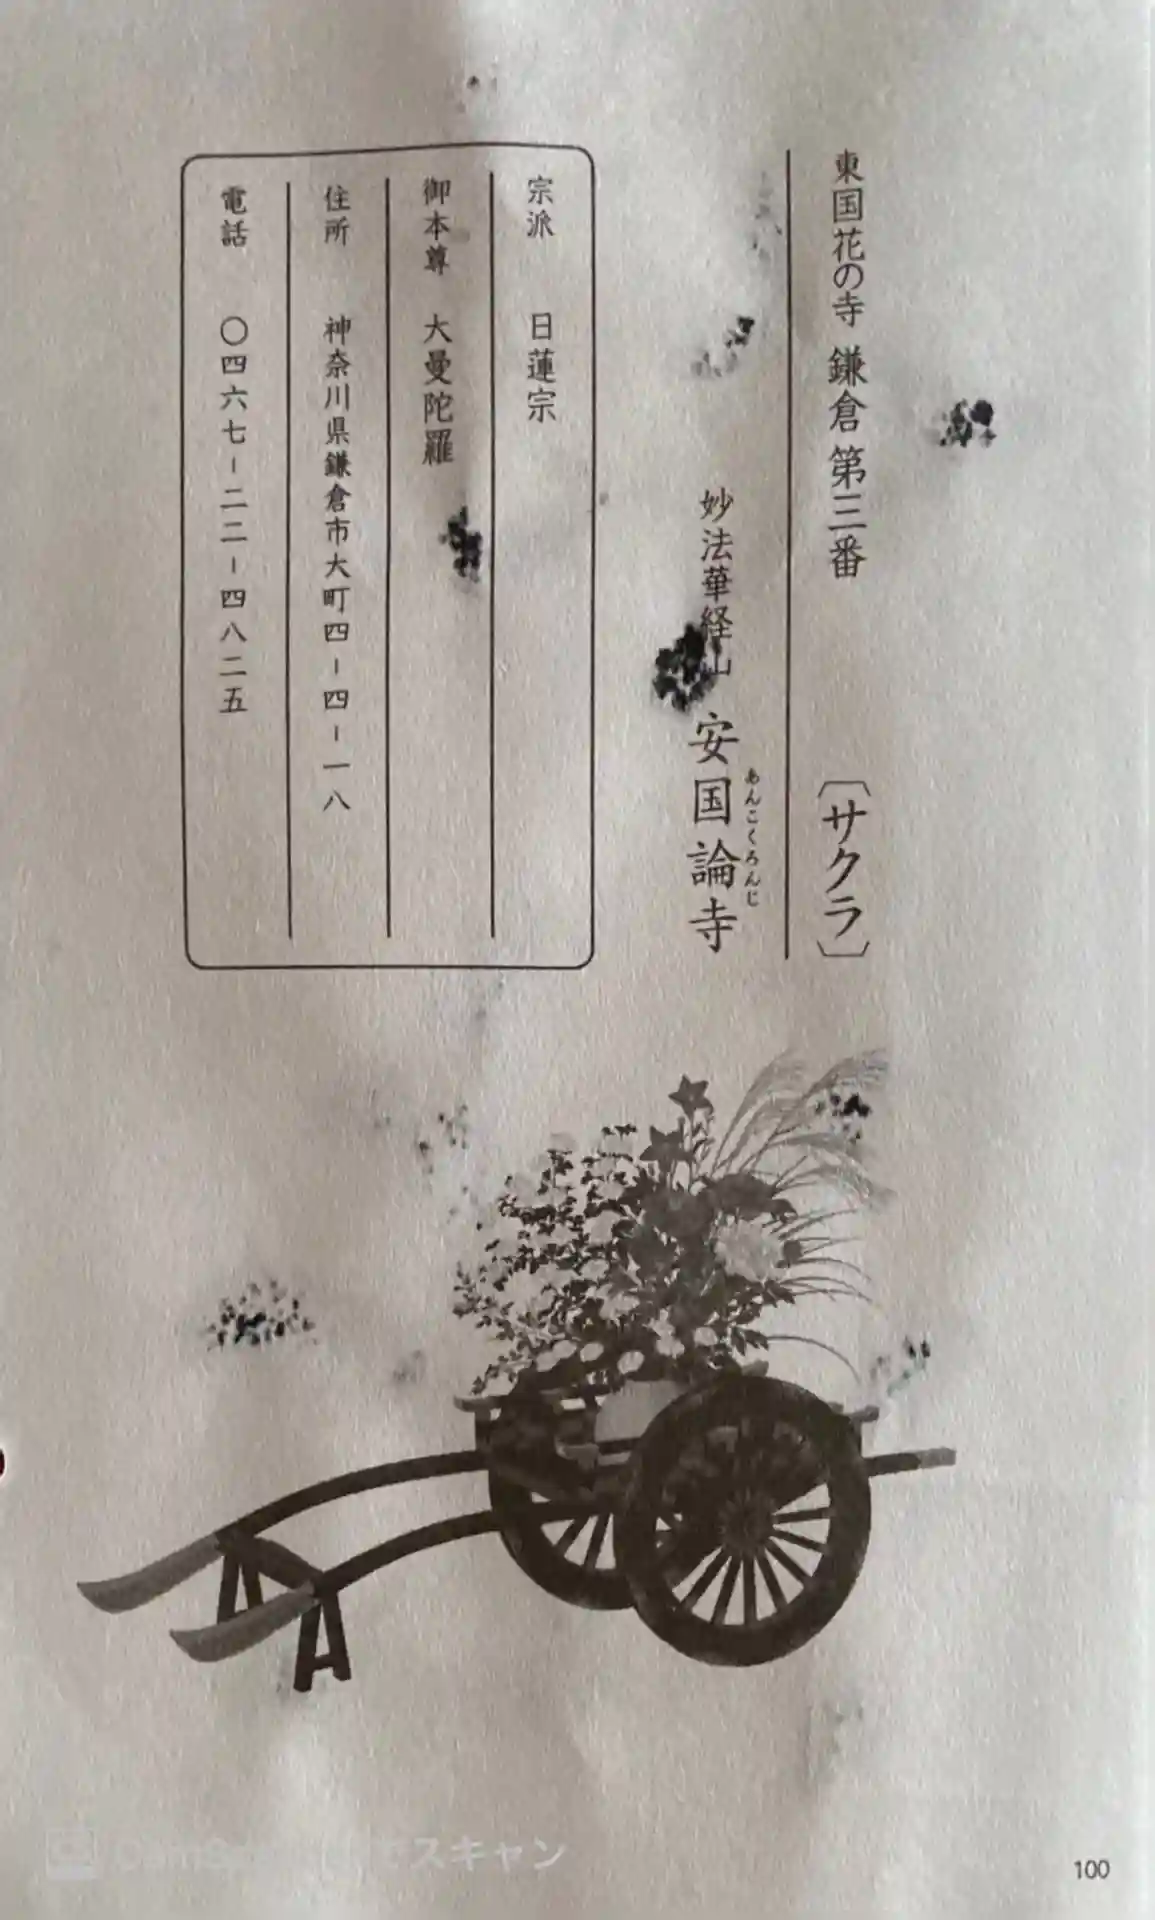 東国花の寺 鎌倉 第三番 〔サクラ〕
妙法華経山 安国論寺
あんこくろんじ
宗派 日蓮宗
御本尊 大曼陀羅
住所 神奈川県鎌倉市大町四-四-一八
電話 〇四六七-二二-四八二五
スキャン
100